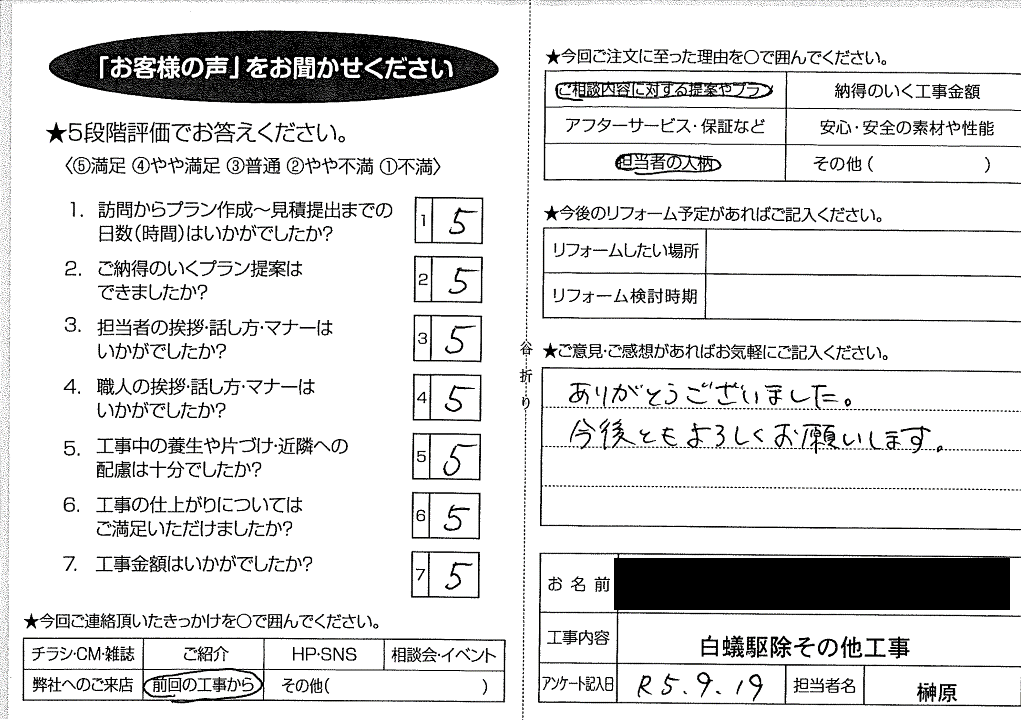 「お客様の声」をお聞かせください
★5段階評価でお答えください。
〈⑤満足 ④やや満足 ③普通 ②やや不満 ①不満〉
1. 訪問からプラン作成〜見積提出までの
日数(時間)はいかがでしたか?
1 5
2. ご納得のいくプラン提案は
できましたか?
2 5
3. 担当者の挨拶・話し方・マナーは
いかがでしたか?
3 5
4. 職人の挨拶・話し方・マナーは
いかがでしたか?
4 5
5. 工事中の養生や片づけ・近隣への
配慮は十分でしたか?
5 5
6. 工事の仕上がりについては
ご満足いただけましたか?
6 5
7. 工事金額はいかがでしたか?
7 5
★今回ご連絡頂いたきっかけを〇で囲んでください。
チラシ・CM・雑誌 ご紹介 HP・SNS 相談会・イベント
弊社へのご来店 前回の工事から その他( )
谷折り
★今回ご注文に至った理由を〇で囲んでください。
ご相談内容に対する提案やプラン 納得のいく工事金額
アフターサービス・保証など 安心・安全の素材や性能
担当者の人柄 その他( )
★今後のリフォーム予定があればご記入ください。
リフォームしたい場所
リフォーム検討時期
★ご意見・ご感想があればお気軽にご記入ください。
ありがとうございました。
今後ともよろしくお願いします。
お名前
工事内容 白蟻駆除その他工事
アンケート記入日 R5.9.19 担当者名 榊原